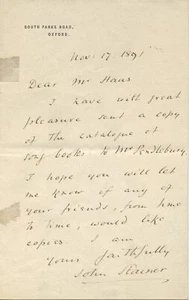 SOUTH PARKS ROAD,
OXFORD.
Nov: 17. 1891
Dear Mr
I have with great
pleasure sent a copy
of the catalogue of
song books to Mr Pendlebury.
I hope you will let
me know if any of
your friends, from time
to time, would like
copies. I am
Yours faithfully
John Stainer